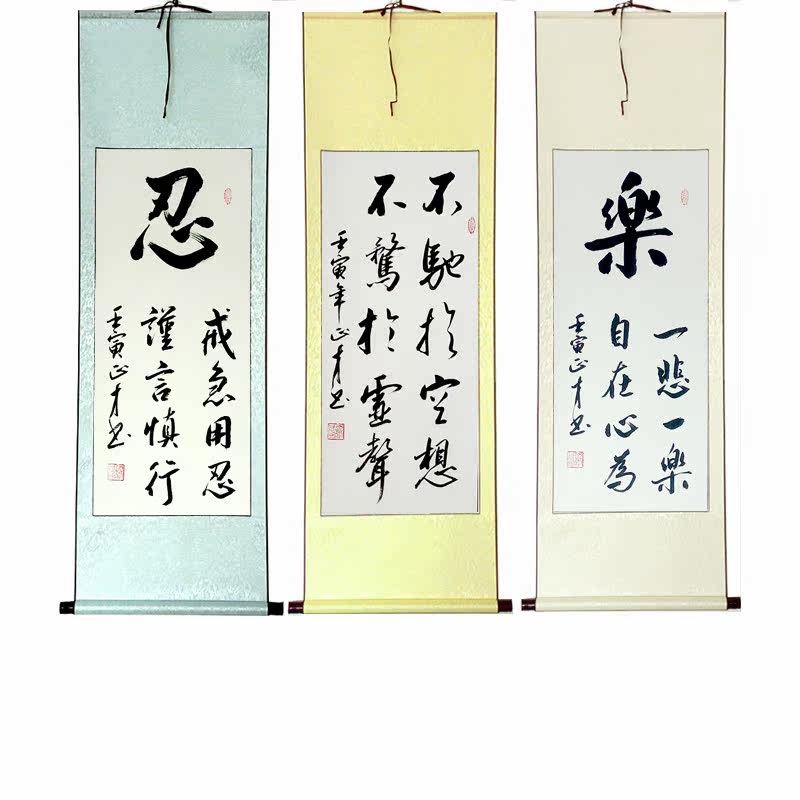 忍
戒急用忍
謹言慎行
壬寅正才书
不馳於空想
不騖於虛聲
壬寅年正才书
樂
一悲一樂
自在心為
壬寅正才书